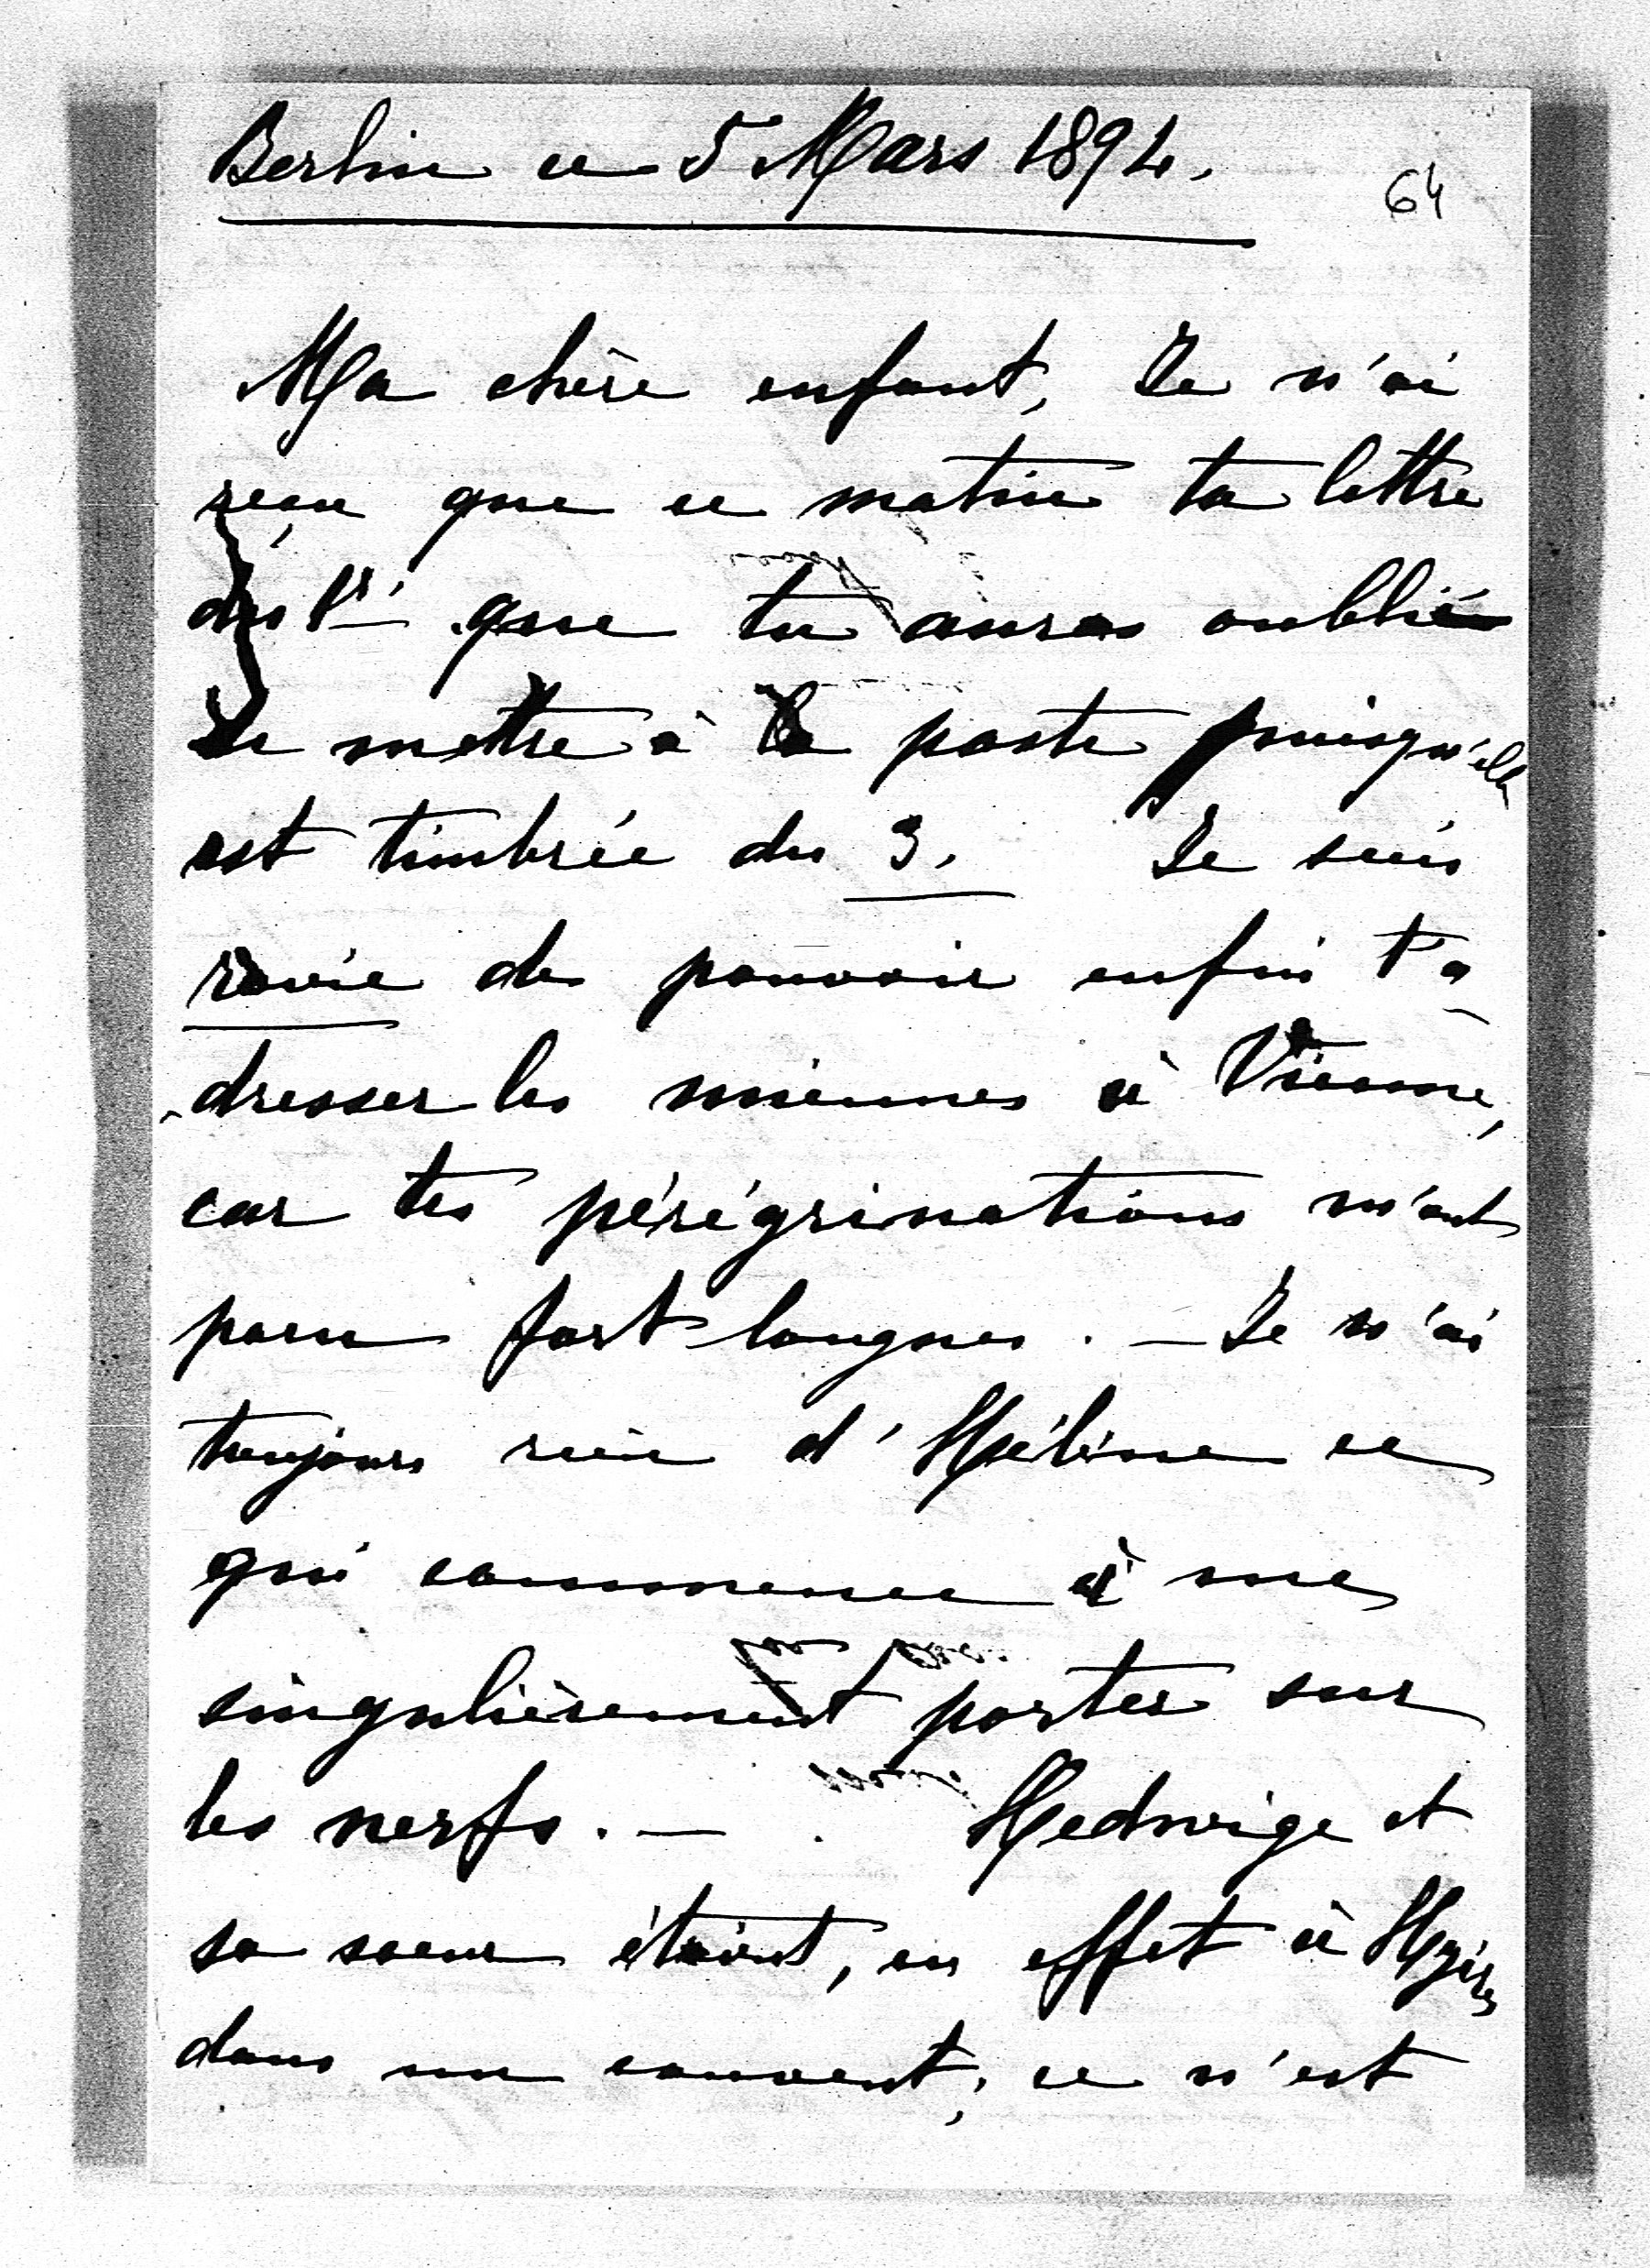 Berlin ce 5 Mars 1894.
64
Ma chère enfant, Je n'ai
reçu que ce matin ta lettre
du 1er que tu auras oublié
de mettre à la poste puisqu'elle
est timbrée du 3. Je suis
ravie de pouvoir enfin t'a-
dresser les miennes à Vienne,
car tes pérégrinations m'ont
paru fort longues. — Je n'ai
toujours rien d'Hélène ce
qui commence à me
singulièrement porter sur
les nerfs. — Hedwige et
sa soeur étaient, en effet à Hyères
dans un couvent; ce n'est